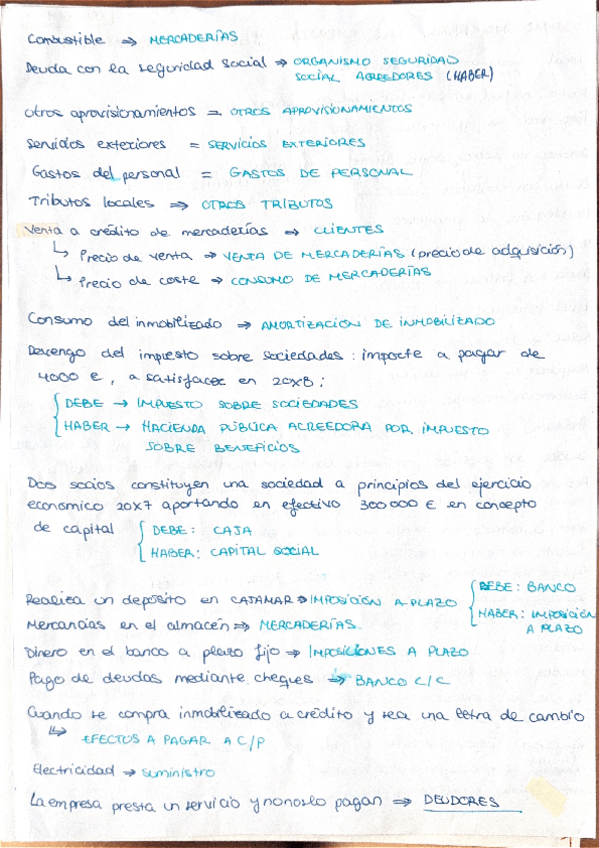 Combustible → MERCADERÍAS
Deuda con la seguridad social → ORGANISMO SEGURIDAD
SOCIAL ACREEDORES (HABER)
Otros aprovisionamientos = OTROS APROVISIONAMIENTOS
Servicios exteriores = SERVICIOS EXTERIORES
Gastos del personal = GASTOS DE PERSONAL
Tributos locales ⇒ OTROS TRIBUTOS
Venta a crédito de mercaderías → CLIENTES
↳ Precio de venta → VENTA DE MERCADERÍAS (precio de adquisición)
↳ Precio de coste → CONSUMO DE MERCADERÍAS
Consumo del inmobilizado → AMORTIZACIÓN DE INMOBILIZADO
Devengo del impuesto sobre sociedades: importe a pagar de
4000 €, a satisfacer en 20X8:
DEBE → IMPUESTO SOBRE SOCIEDADES
HABER → HACIENDA PÚBLICA ACREEDORA POR IMPUESTO
SOBRE BENEFICIOS
Dos socios constituyen una sociedad a principios del ejercicio
economico 20X7 aportando en efectivo 300000 € en concepto
de capital
DEBE: CAJA
HABER: CAPITAL SOCIAL
Realiza un depósito en CAJAMAR → IMPOSICIÓN A PLAZO
DEBE: BANCO
HABER: IMPOSICIÓN
A PLAZO
Mercancias en el almacén → MERCADERÍAS
Dinero en el banco a plazo fijo → IMPOSICIONES A PLAZO
Pago de deudas mediante cheques → BANCO C/C
Cuando se compra inmobilizado a crédito y sea una letra de cambio
↳ EFECTOS A PAGAR A C/P
Electricidad → suministro
La empresa presta un servicio y no nos lo pagan ⇒ DEUDORES